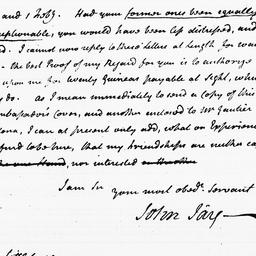 and 1 2069. Had your former ones been equally
explainable, you would have been less distressed, and
I cannot now reply to those letters at length, for want
the best Proof of my Regard for you is to authorize
upon me for twenty Guineas payable at sight, which
do. As I mean immediately to send a copy of this
mbassador's Cover, and another enclosed to Mr Gautier
lona, I can at present only add, what on Experience
find to be true, that my friendships are neither ca
the one Hand, nor interested on the other
I am Sir your most obedt. Servant
John Jay